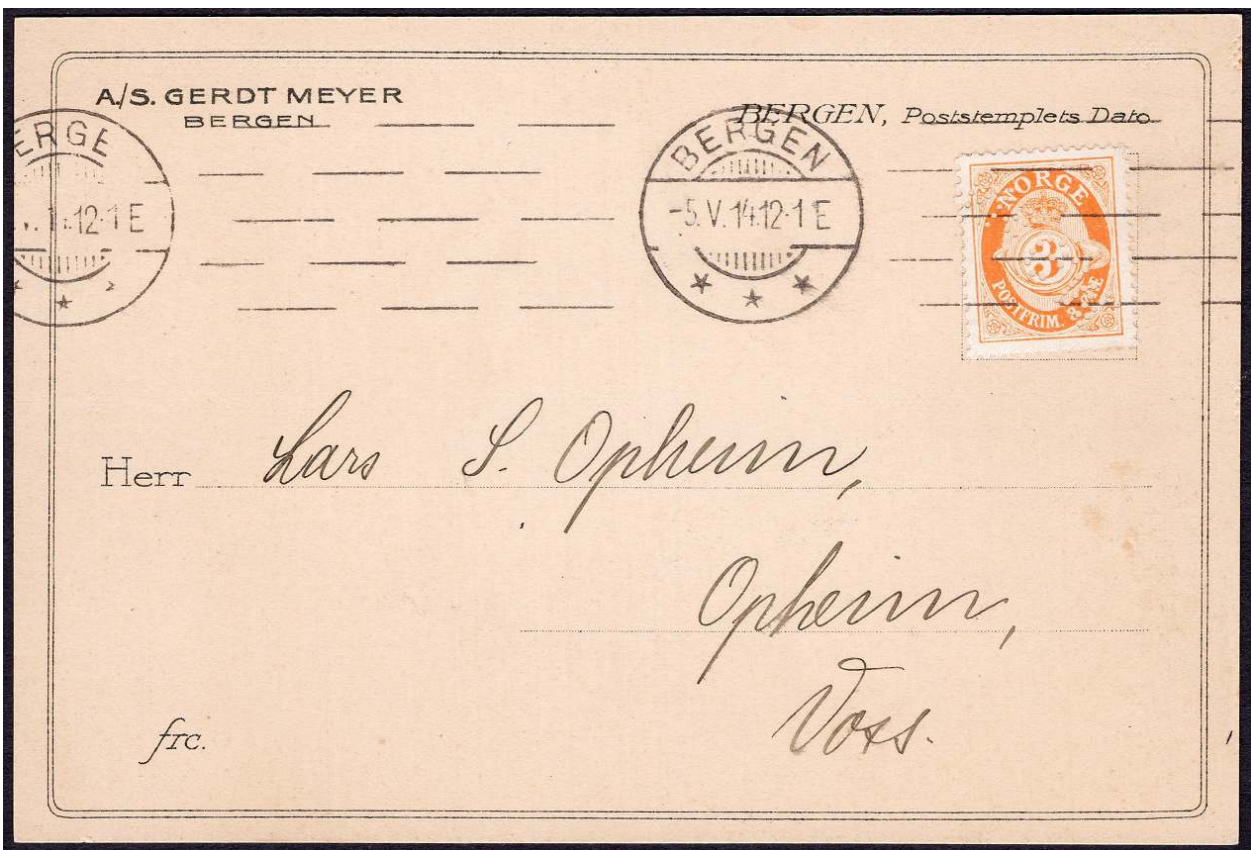 A/S. GERDT MEYER
BERGEN
BERGEN, Poststemplets Dato
ERGE
12-1 E
BERGEN
-5.V.14.12-1 E
NORGE
3
POSTFRIM. 3 ØRE
Herr Lars S. Opheim,
Opheim,
Voss.
frc.